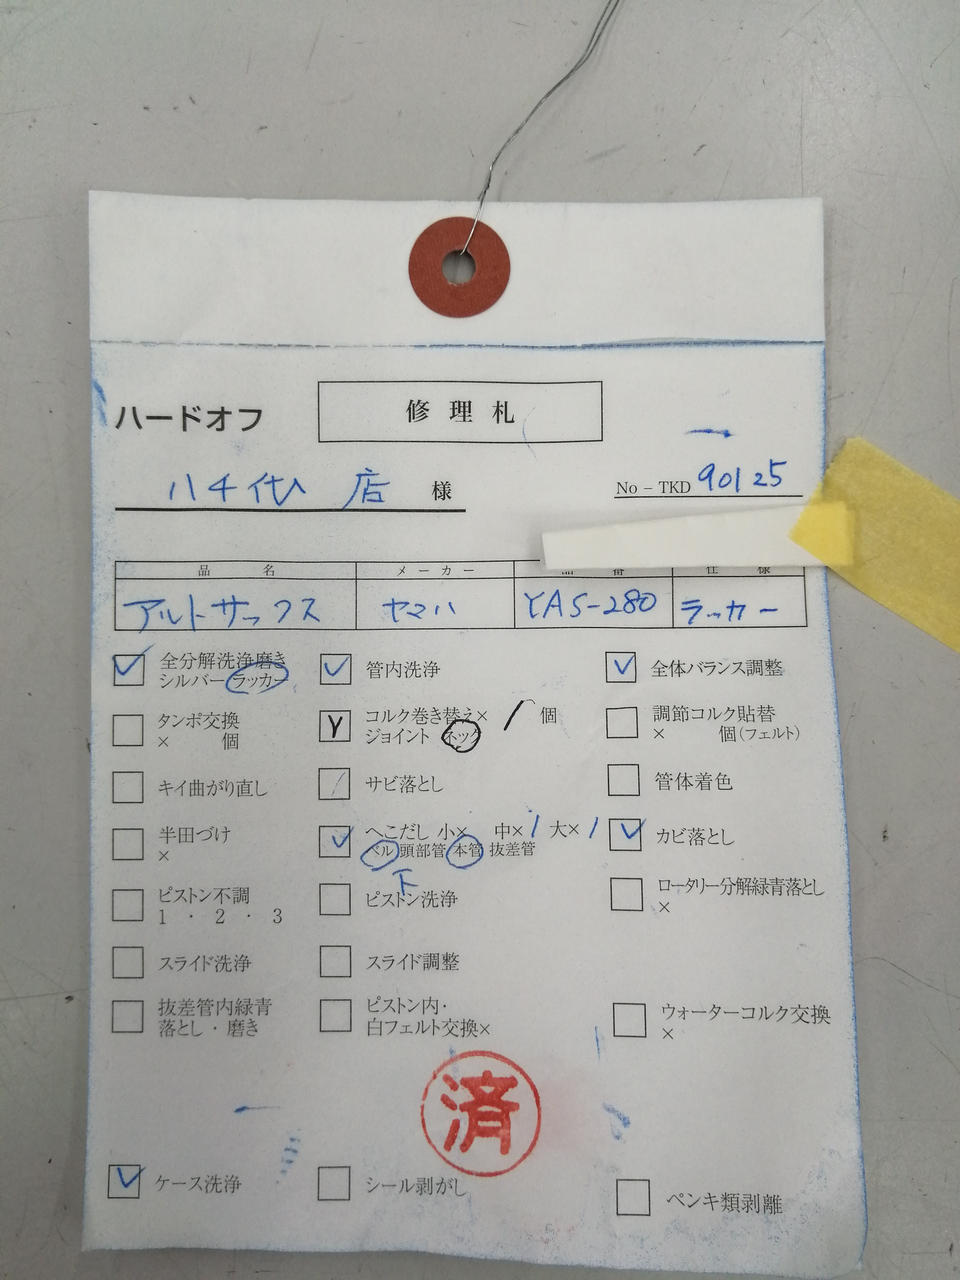 ハードオフ
修理札
八千代 店 様
No－TKD 90125
品 名 メーカー 品 番 仕 様
アルトサックス ヤマハ YAS-280 ラッカー
全分解洗浄磨き
シルバー ラッカー
管内洗浄
全体バランス調整
タンポ交換
× 個
コルク巻き替え× 1 個
ジョイント ネック
調節コルク貼替
× 個(フェルト)
キイ曲がり直し
サビ落とし
管体着色
半田づけ
×
へこだし 小× 中×1 大×1
ベル 頭部管 本管 抜差管
下
カビ落とし
ピストン不調
1 ・ 2 ・ 3
ピストン洗浄
ロータリー分解緑青落とし
×
スライド洗浄
スライド調整
抜差管内緑青
落とし・磨き
ピストン内・
白フェルト交換×
ウォーターコルク交換
×
済
ケース洗浄
シール剥がし
ペンキ類剥離